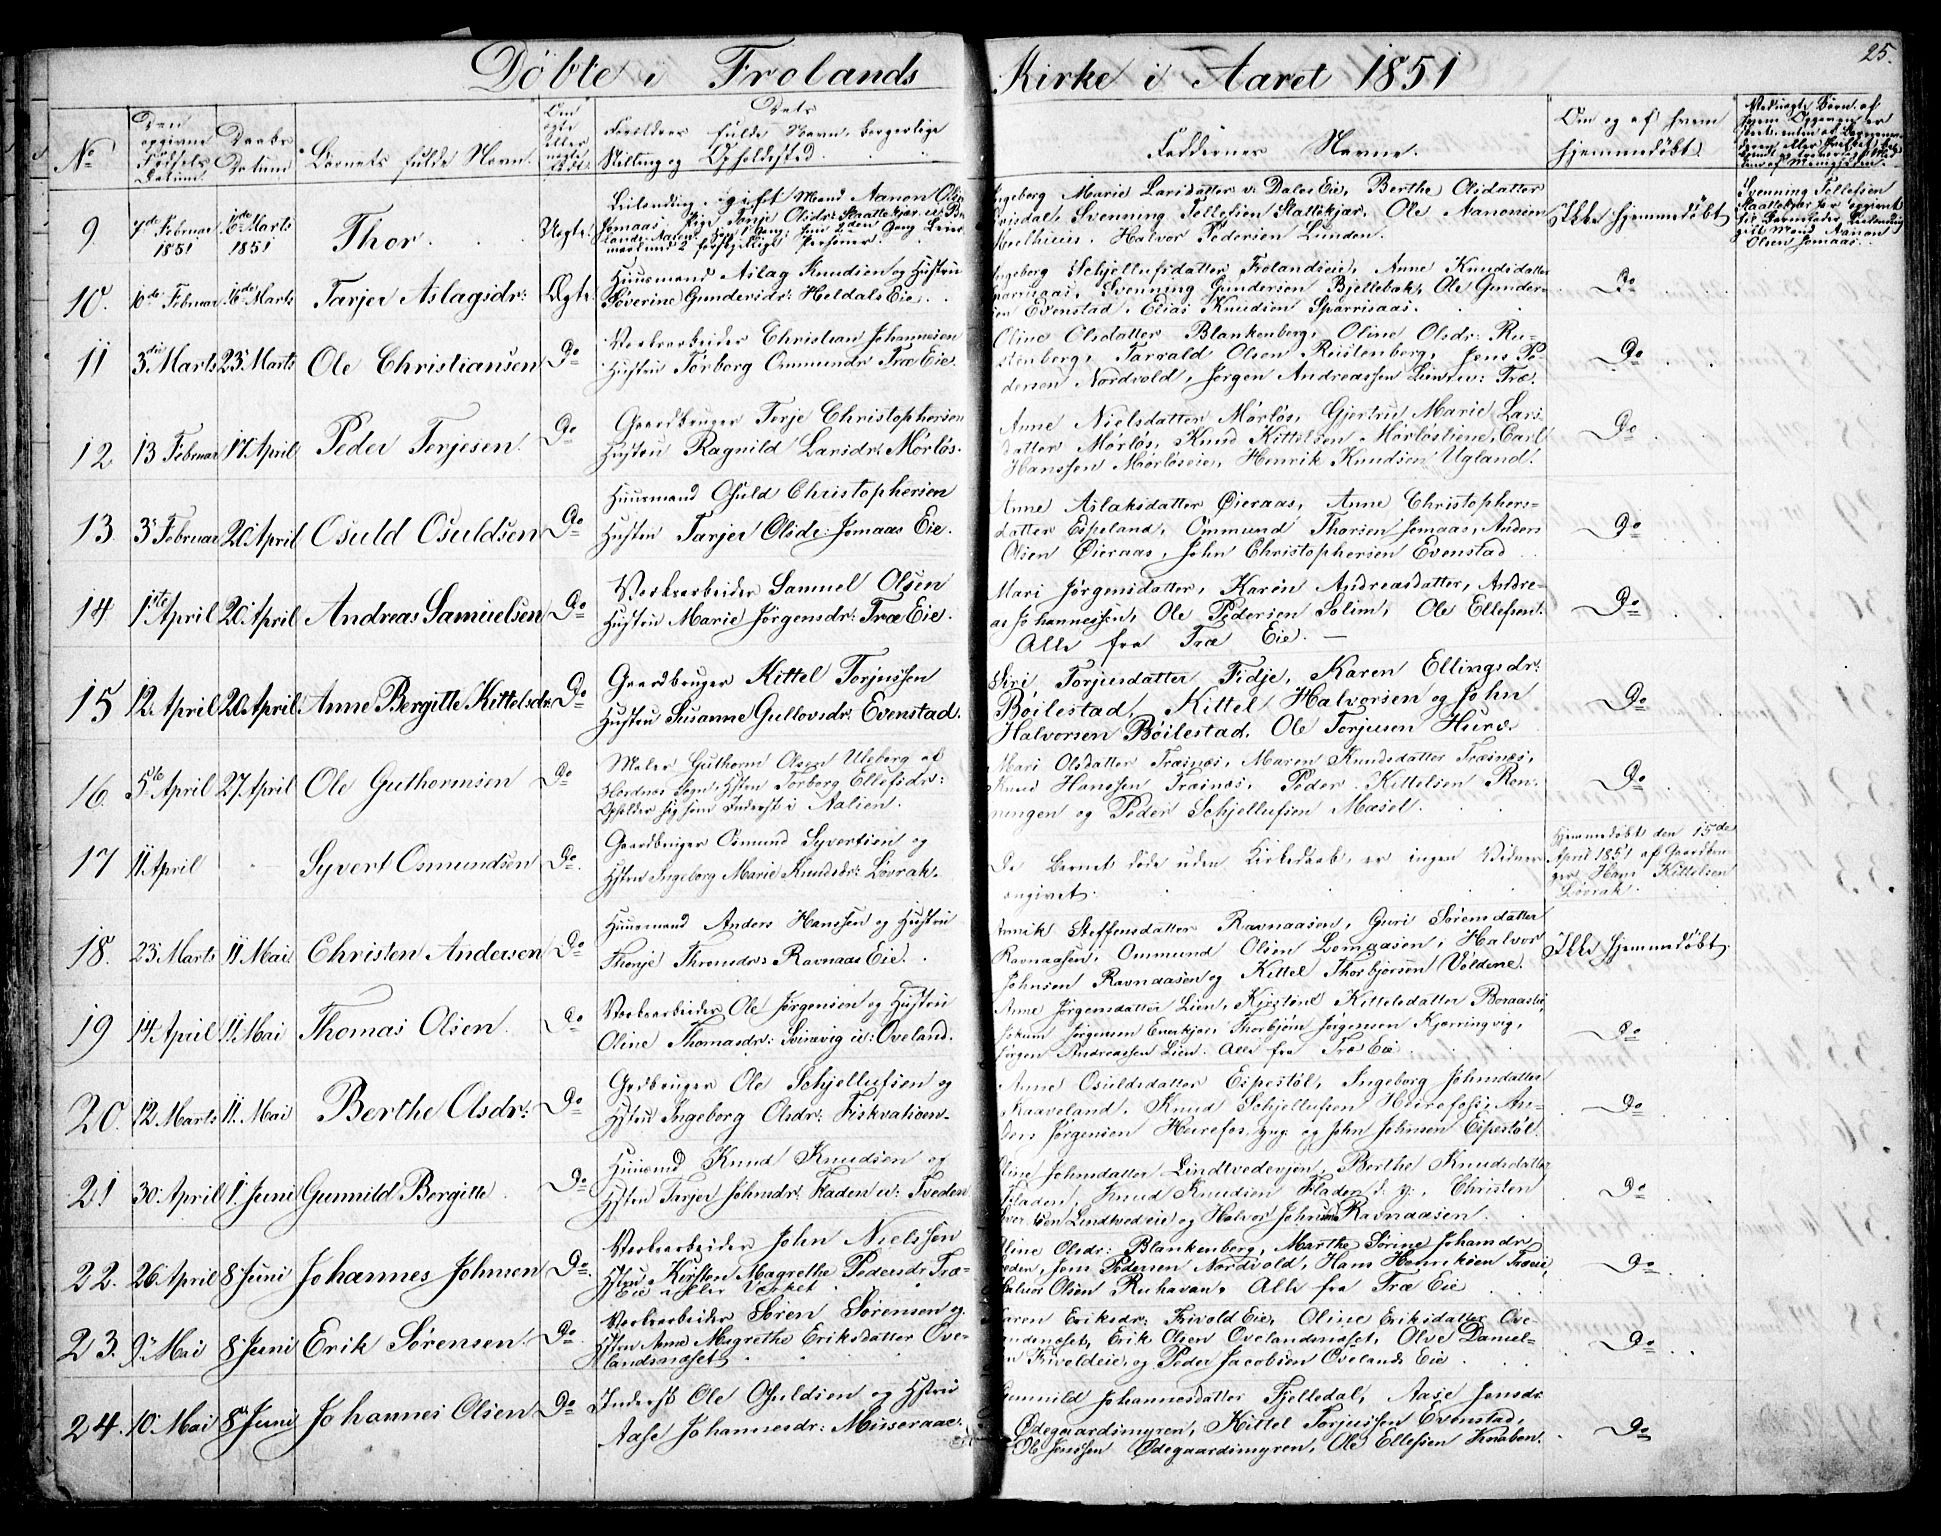 Döbte i Frolands Kirke i Aaret 1851
25.
No
Den opgivne Fødsels Datum
Daabs Datum
Barnets fulde Navn.
Om ægte eller uægte
Dets Forældres fulde Navn, borgerlige Stilling og Opholdssted.
Faddernes Navne.
Om og af hvem hjemmedøbt.
9 7de Februar 1851 16de Marts 1851 Thor. Uegte.
Ingeborg Marie Larsdatter v. Dales Eie, Berthe Olsdatter
Svenning Tellefsen Slattekjær, Ole Aanonsen
Mælhuus. Halvor Pedersen Lunden.
Ikke hjemmedøbt
Svenning Tellefsen
gift Mand Aanon
Olsen Jomaas.
10. 16de Februar 16de Marts Tarjer Aslagsdr: Ægte.
Huusmand Aslag Knudsen og Hustru
Severine Gundersdr: Heldals Eie.
Ingeborg Schjellufsdatter Frolandseie, Anne Knudsdatter
Sparrsaas, Svenning Gundersen Bjellebak, Ole Gunder-
sen Evenstad, Elias Knudsen Sparrisaas.
Do
11 3die Marts 23 Marts Ole Christiansen Do
Værksarbeider Christian Johannesen
Hustru Torborg Ommundr Træ Eie.
Oline Olsdatter Blankenberg, Oline Olsdr. Ru-
stenberg, Tarrald Olsen Rustenberg, Jens Pe-
dersen Nordvold, Jørgen Andreassen Lien u: Træ.
Do
12 13 Februar 17 April Peder Terjesen Do
Gaardbruger Terje Christophersen
Hustru Ragnild Larsdr. Mørløs.
Anne Nielsdatter Mørløs, Gjertru Marie Lars
datter Mørløs, Knud Kittelsen Mørløstiene, Carl
Hanssen Mørløseie, Henrik Knudsen Ugland.
Do
13. 3 Februar 20 April Osuld Osuldsen Do
Huusmand Osuld Christophersen
Hustru Tarjer Olsdr: Jomaas Eie.
Anne Aslaksdatter Øieraas, Anne Christophers-
datter Espeland, Ommund Thorsen Jomaas, Anders
Olsen Øieraas, John Christophersen Evenstad
Do
14 1ste April 20 April Andreas Samuelsen Do
Værksarbeider Samuel Olsen
Hustru Marie Jørgensdr: Træ Eie.
Mari Jørgensdatter, Karen Andreasdatter, Andre-
as Johannessen, Ole Pedersen Solim, Ole Ellefsen.
Alle fra Træ Eie.
Do
15 12. April 20 April Anne Bergitte Kittelsdr. Do
Gaardbruger Kittel Torjussen
Hustru Susanne Gullovsdr: Evenstad.
Siri Torjusdatter Fidje, Karen Ellingsdr:
Bøilestad, Kittel Halvorsen og John
Halvorsen Bøilestad. Ole Torjusen Hurv.
Do
16. 5te April 27 April Ole Guthormsen Do
Maler Guthorm Olsen Uleberg af
Hordnes Sogn, Hstru Torborg Ellefsdr:
Opholder sig som Inderst i Aalien.
Mari Olsdatter Træinæs, Maren Knudsdatter Træinæs,
Knud Hanssen Træinæs, Peder Kittelsen Ron-
ningen og Peder Schjellufsen Mæsel.
Do
17 11 April Syvert Osmundsen Do
Gaardbruger Osmund Syvertsen og
Hstru Ingeborg Marie Knudsdr: Løvrak.
Da Barnet døde uden Kirkedaab, er ingen Vidner
angivet.
Hjemmedøbt den 15de
April 1851 af Gaardbru-
ger Hans Kittelsen
Løvrak.
18. 23 Marts 11 Mai Christen Andersen Do
Huusmand Anders Hanssen og Hustru
Thenje Thromdr: Ravnaas Eie.
Steffensdatter Ravnaasen, Guri Sørensdatter
Ravnaasen, Ommund Olsen Lomaasen, Halvor
Johnsen Ravnaasen og Kittel Thorbjørsen Voldene.
Ikke hjemmedøbt.
19 14 April 11. Mai Thomas Olsen. Do
Værksarbeider Ole Jørgensen og Hustru
Oline Thomasdr: Svinevig u: Oveland.
Anne Jørgensdatter Lien, Kirstene Kittelsdatter
Jokum Jørgensen Thorbjørn Jørgensen Kjærringvig,
Jørgen Andreassen Lien. Alle fra Træ Eie
Do
20. 12 Marts 11. Mai Berthe Olsdr: Do
Grdbruger Ole Schjellufsen og
Hstru Ingeborg Olsdr: Fiskvatnen.
Anne Osuldsdatter Espestøl, Ingeborg Johnsdatter
Kaaveland, Knud Schjellufsen Heirefos, An-
ders Jørgensen Heirefos yng. og John Johnsen Espestøl.
Do
21 30. April 1. Juni Gunnild Bergitte Do
Huusmd Knud Knudsen og
Hstru Tarjer Johnsdr: Fladen u: Tveden
Oline Johnsdatter Lindtvedveien, Berthe Knudsdatter
Fladen, Knud Knudsen Fladen d. y., Christen
Lindtvedeie og Halvor Johnsen Ravnaasen.
Do
22. 26. April 8 Juni Johannes Johnsen Do.
Værksarbeider John Nielssen
Hstru Kirsten Magrethe Pedersdr: Træ-
Eie eller Værket
Oline Olsdr: Blankenberg, Marthe Sørine Johansdr
Jens Pedersen Nordvold, Hans Henriksen Træeie,
Halvor Olsen Alle fra Træ Eie
Do
23. 9 Mai 8 Juni Erik Sørensen. Do.
Værksarbeider Søren Sørensen og
Hstru Anne Magrethe Eriksdatter Ove-
landsnæset
Karen Eriksdr: Eie, Oline Eriksdatter Ove-
landsnæset, Erik Olsen Ovelandsnæset, Olve Daniel-
sen og Peder Jacobsen Ovelands Eie
Do
24. 10. Mai 8 Juni Johannes Olsen. Do
Inderst Ole Osuldsen og Hstru
Aase Johannesdr: Messeraae.
Gunnild Johannesdatter Fjelledal, Aase Jensdr
Ødegaardsmyren, Kittel Torjussen Evenstad,
Ole Jenssen Ødegaardsmyren, Ole Ellefsen Knaben.
Do